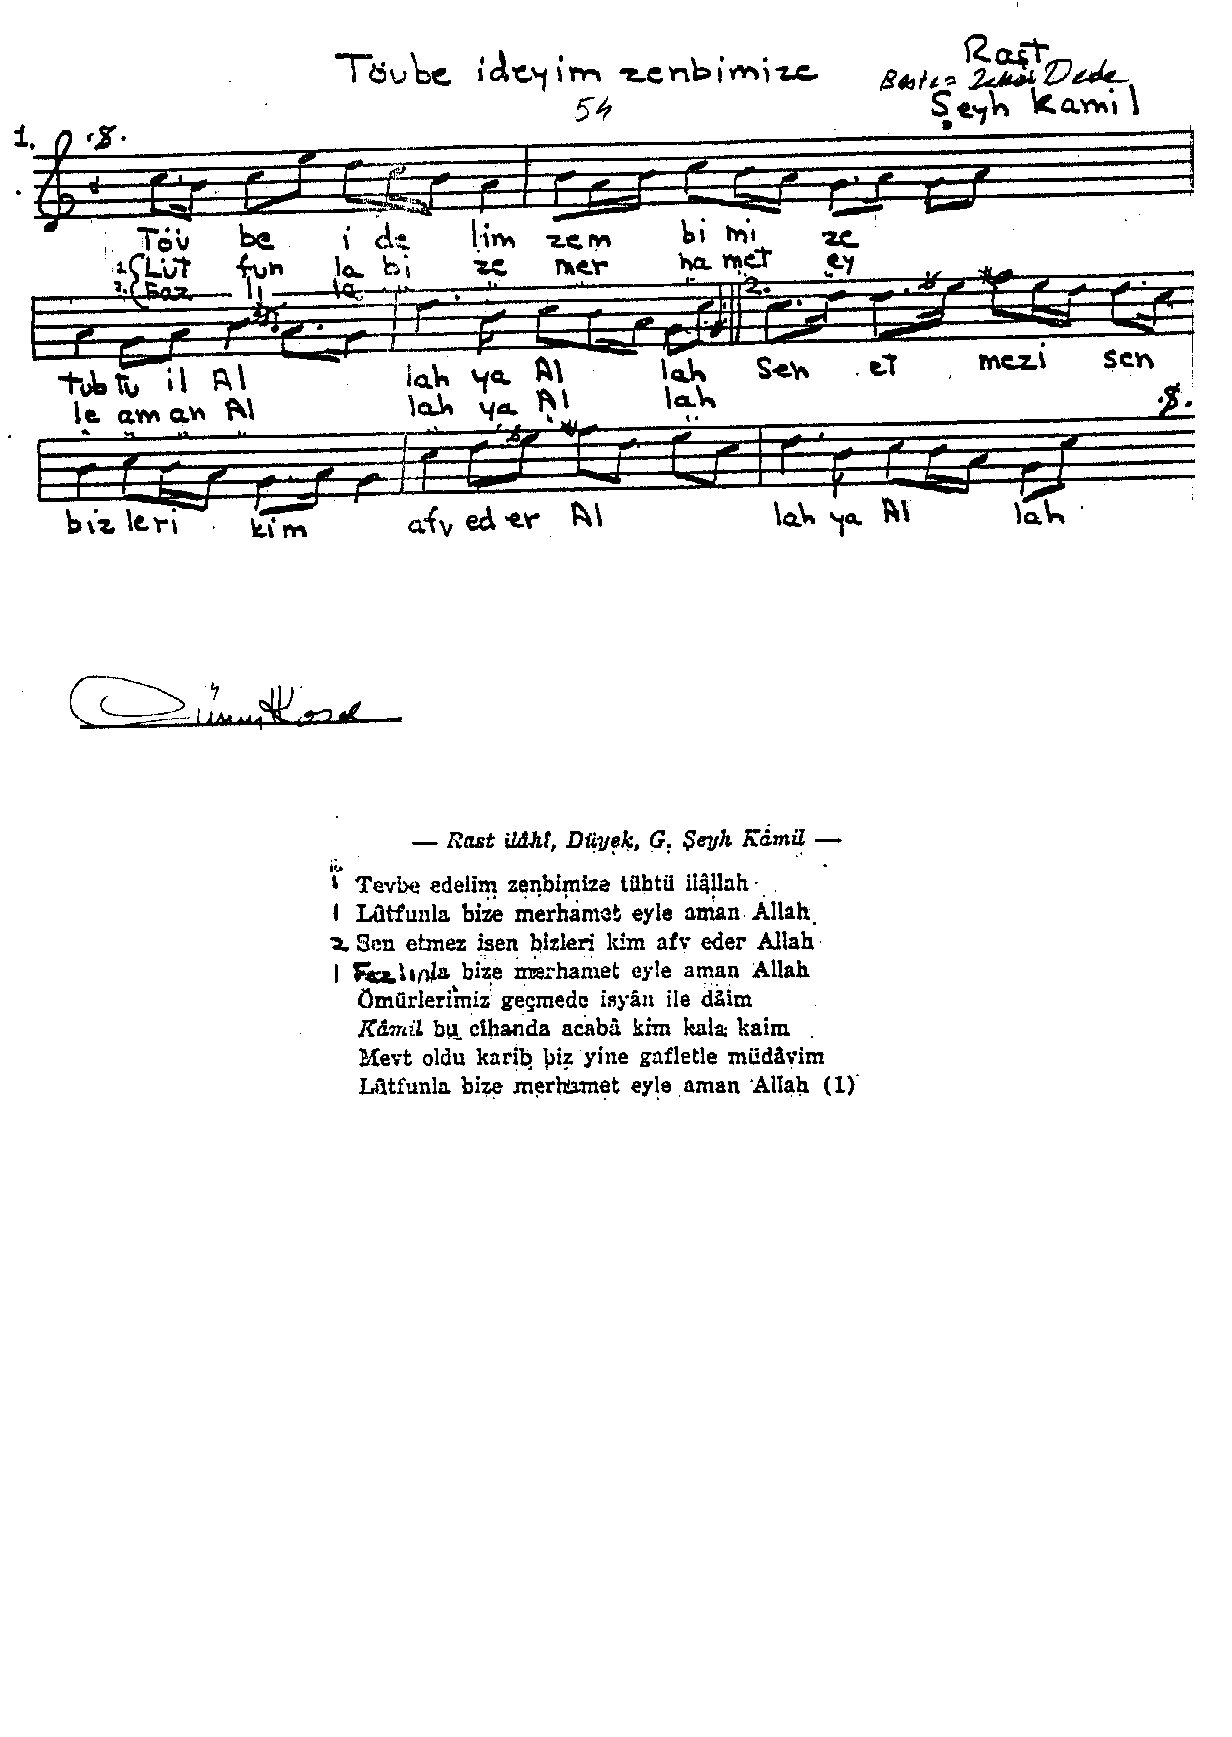 Tövbe ideyim zenbimize
Rast
Beste = Zekâi Dede
54
Şeyh Kamil
1.
Töv be i de lim zem bi mi ze
1. Lüt fun la bi ze mer ha met ey
2. Faz lı la
2.
tub tu il Al lah ya Al lah Sen et mezi sen
le aman Al lah ya Al lah
biz leri kim afv eder Al lah ya Al lah
— Rast ilâhî, Düyek, G. Şeyh Kâmil —
1 Tevbe edelim zenbimize tübtü ilâllah
1 Lûtfunla bize merhamet eyle aman Allah
2 Sen etmez isen bizleri kim afv eder Allah
1 Fazlınla bize merhamet eyle aman Allah
Ömürlerimiz geçmede isyân ile dâim
Kâmil bu cihanda acabâ kim kala kaim
Mevt oldu karib biz yine gafletle müdâvim
Lûtfunla bize merhamet eyle aman Allah (1)